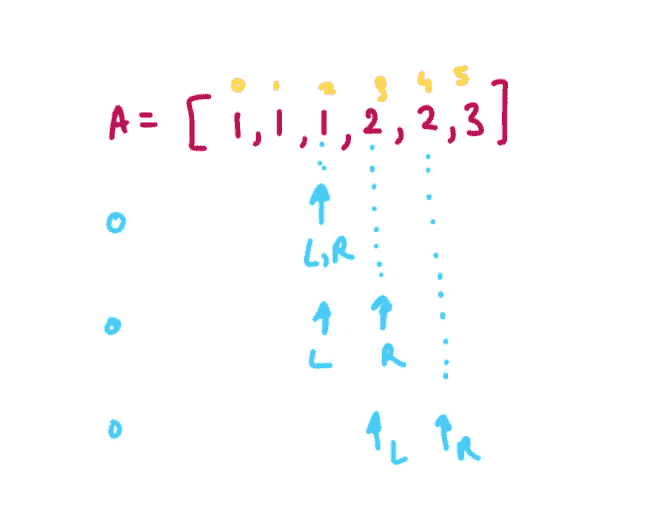 0 1 2 3 4 5
A = [ 1, 1, 1, 2, 2, 3 ]
0
L,R
0
L R
0
L R